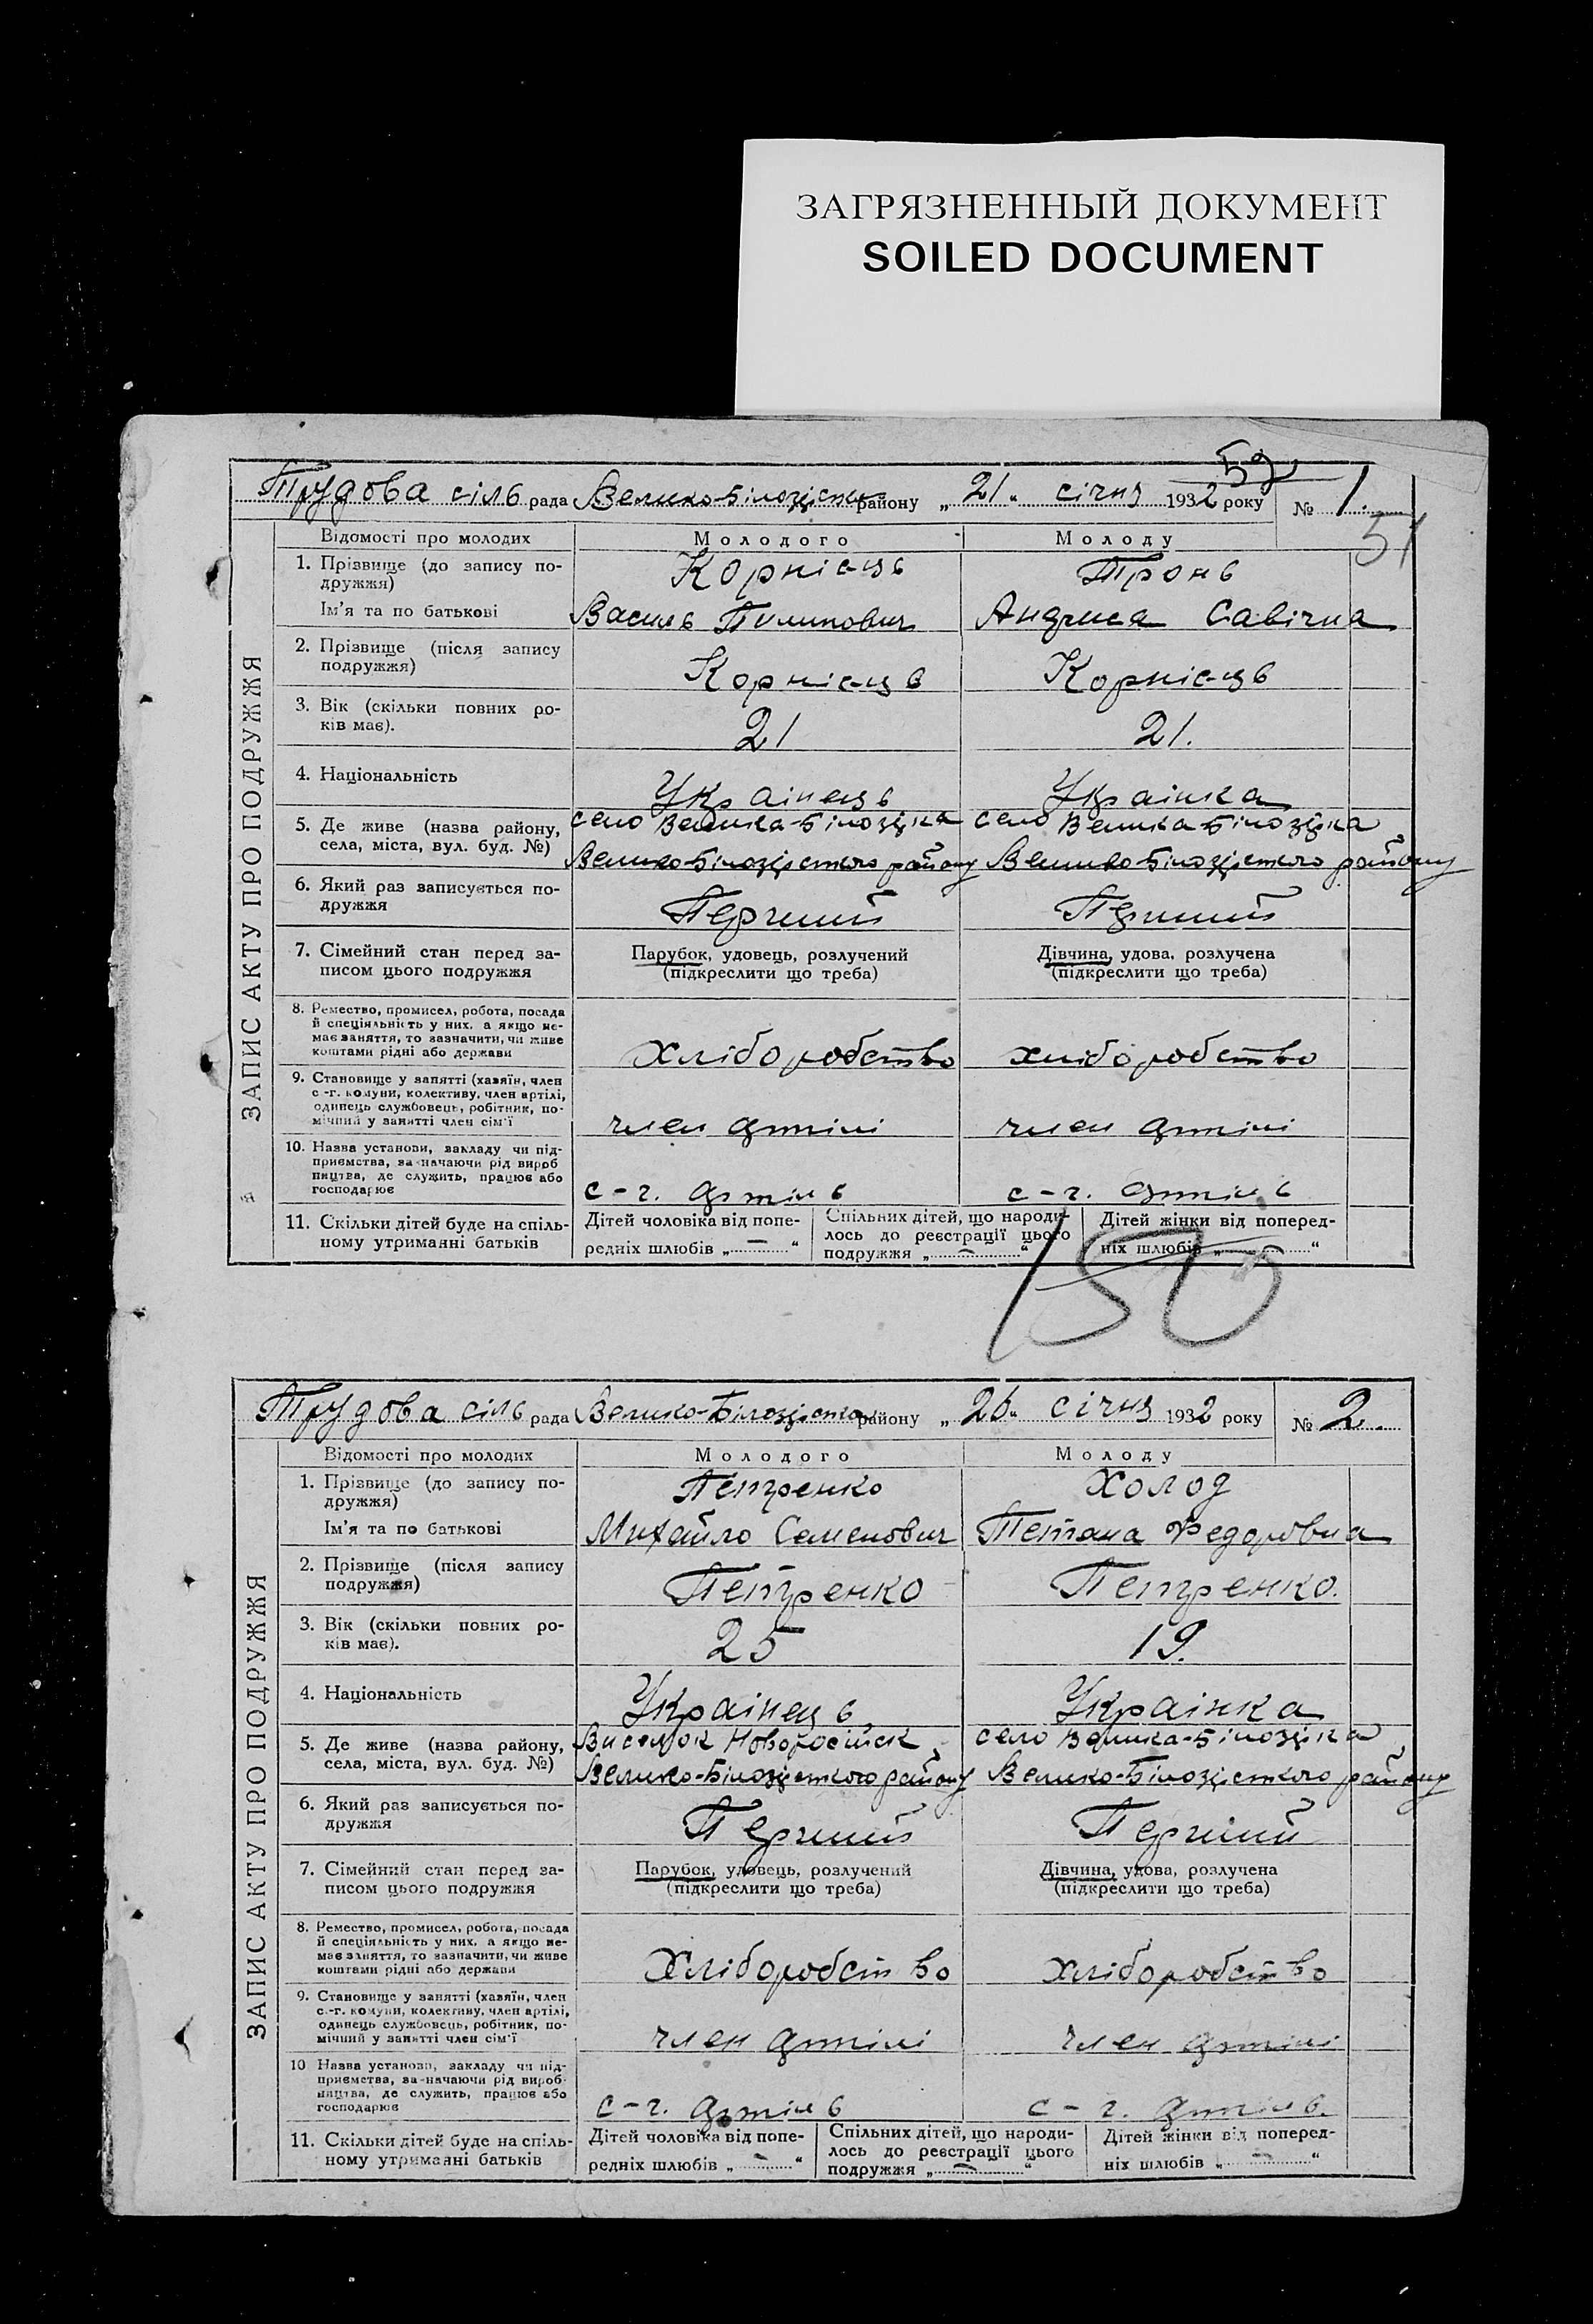 ЗАГРЯЗНЕННЫЙ ДОКУМЕНТ
SOILED DOCUMENT
52
Трудова сіль рада Велико-Білозірськ. району „ 21 “ січня 1932 року № 1.
51
ЗАПИС АКТУ ПРО ПОДРУЖЖЯ
Відомості про молодих Молодого Молоду
1. Прізвище (до запису по-
дружжя) Корнієць Тронь
Ім'я та по батькові Василь Пилипович Савічна
2. Прізвище (після запису
подружжя) Корнієць Корнієць
3. Вік (скільки повних ро-
ків має). 21 21.
4. Національність Українець Українка
5. Де живе (назва району, село Велика-Білозірка село Велика-Білозірка
села, міста, вул. буд. №) Велико-Білозірського району Велико-Білозірського району
6. Який раз записується по-
дружжя Перший Перший
7. Сімейний стан перед за- Парубок, удовець, розлучений Дівчина, удова, розлучена
писом цього подружжя (підкреслити що треба) (підкреслити що треба)
8. Ремество, промисел, робота, посада
й спеціяльність у них, а якщо не-
має заняття, то зазначити, чи живе
коштами рідні або держави хліборобство хліборобство
9. Становище у занятті (хазяїн, член
с.-г. комуни, колективу, член артілі,
одинець службовець, робітник, по-
мічний у занятті член сім'ї член артілі член артілі
10. Назва установи, закладу чи під-
приємства, зазначаючи рід вироб
ництва, де служить, працює або
господарює с-г. артіль с-г. артіль
11. Скільки дітей буде на спіль- Дітей чоловіка від попе- Спільних дітей, що народи- Дітей жінки від поперед-
ному утриманні батьків редніх шлюбів „ — “ лось до реєстрації цього ніх шлюбів „ — “
подружжя „ — “
150
Трудова сіль рада Велико-Білозірськ. району „ 26 “ січня 1932 року № 2.
ЗАПИС АКТУ ПРО ПОДРУЖЖЯ
Відомості про молодих Молодого Молоду
1. Прізвище (до запису по-
дружжя) Петренко Холод
Ім'я та по батькові Михайло Семенович Тетяна Федоровна
2. Прізвище (після запису
подружжя) Петренко Петренко.
3. Вік (скільки повних ро-
ків має). 25 19.
4. Національність Українець Українка
5. Де живе (назва району, Виселок Новоросійск село Велика-Білозірка
села, міста, вул. буд. №) Велико-Білозірського району Велико-Білозірського району
6. Який раз записується по-
дружжя Перший Перший
7. Сімейний стан перед за- Парубок, удовець, розлучений Дівчина, удова, розлучена
писом цього подружжя (підкреслити що треба) (підкреслити що треба)
8. Ремество, промисел, робота, посада
й спеціяльність у них, а якщо не-
має заняття, то зазначити, чи живе
коштами рідні або держави хліборобство хліборобство
9. Становище у занятті (хазяїн, член
с.-г. комуни, колективу, член артілі,
одинець службовець, робітник, по-
мічний у занятті член сім'ї член артілі член артілі
10 Назва установи, закладу чи під-
приємства, зазначаючи рід вироб-
ництва, де служить, працює або
господарює с-г. артіль с-г. артіль.
11. Скільки дітей буде на спіль- Дітей чоловіка від попе- Спільних дітей, що народи- Дітей жінки від поперед-
ному утриманні батьків редніх шлюбів „ — “ лось до реєстрації цього ніх шлюбів „ — “
подружжя „ — “